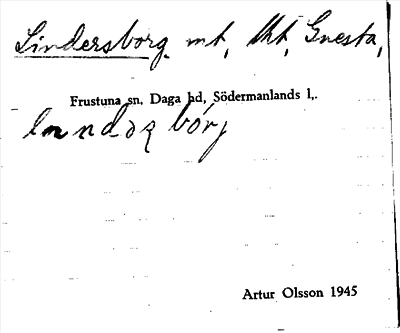 Lindersborg mt, tht, Gnesta,
Frustuna sn, Daga hd, Södermanlands l,.
bórj
Artur Olsson 1945